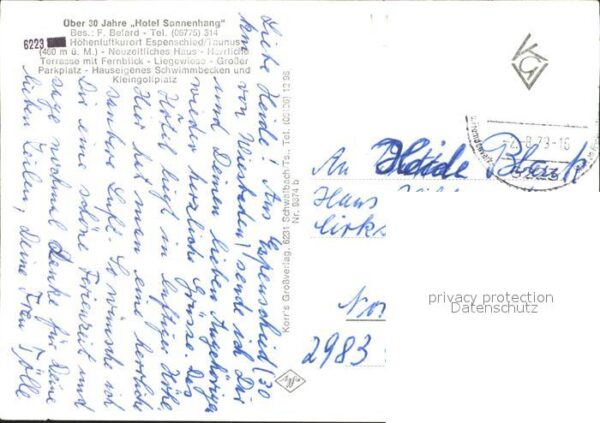 Über 30 Jahre „Hotel Sonnenhang"
Bes.: F. Belard - Tel. (06775) 314
6223
Höhenluftkurort Espenschied/Taunus
(460 m ü. M.) - Neuzeitliches Haus - Herrliche
Terrasse mit Fernblick - Liegewiese - Großer
Parkplatz - Hauseigenes Schwimmbecken und
Kleingolfplatz
Liebe Heide! Aus Espenschied (30
km von Wiesbaden) sende ich Dir
und Deinen lieben Angehörigen
wieder herzliche Grüsse. Das
Hotel liegt in luftiger Höhe.
Hier hat man eine herrliche
saubere Luft. So wünsche ich
Dir eine schöne Ferienzeit und
sage nochmal Danke für Deine
lieben Zeilen, Deine Frau Tölle
Korr's Großverlag, 6231 Schwalbach/Ts., Tel. (06196) 12 96
Nr. 9374 b
-8.79-16
An Heide Blank
Haus
Cirks
Nor
2983
privacy protection
Datenschutz